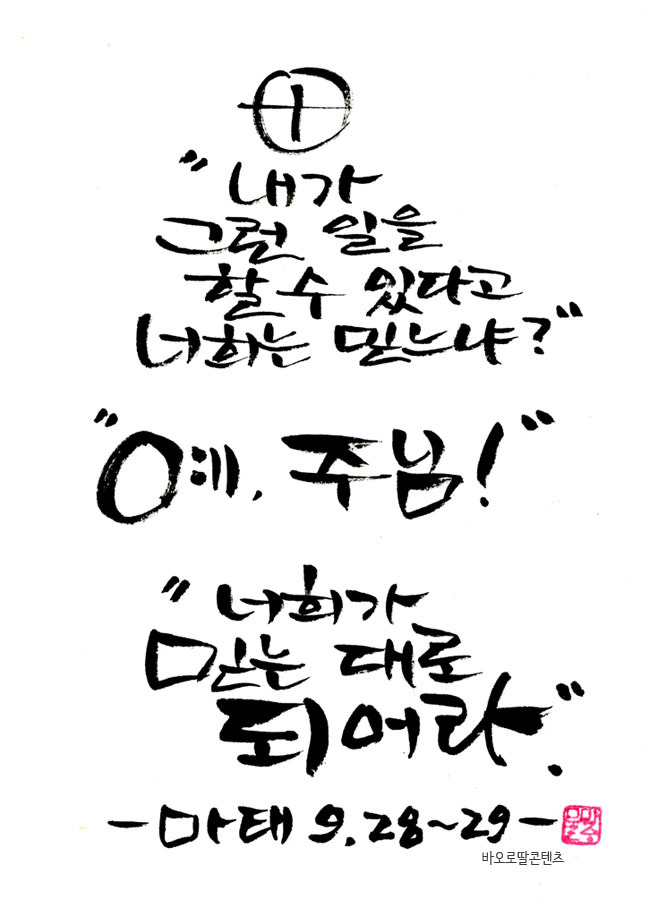 "내가
그런 일을
할 수 있다고
너희는 믿느냐?"
"예, 주님!"
"너희가
믿는 대로
되어라."
-마태 9,28~29-
바오로딸콘텐츠